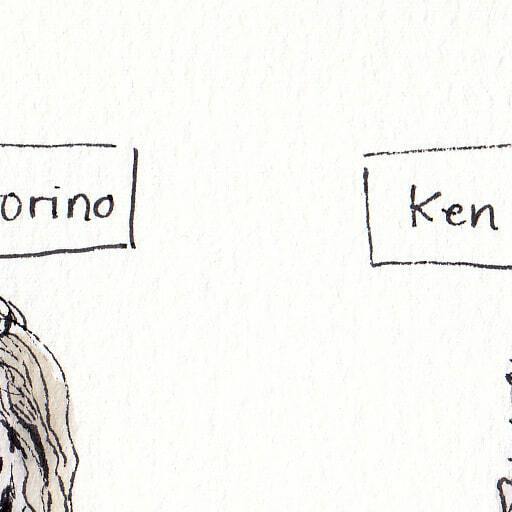 orino
Ken